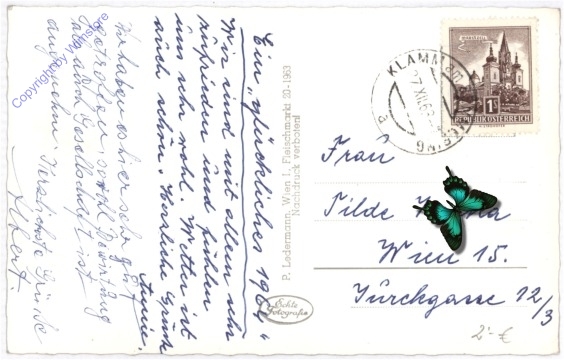 Ein „glückliches 1964"
Wir sind mit allem sehr
zufrieden und fühlen
uns sehr wohl. Wetter ist
auch schön. Herzliche Grüße
Annie.
Wir haben es hier sehr gut
getroffen, sowohl Bewirtung
als auch Gesellschaft ist
angenehm. Herzlichste Grüße
Albert.
Copyright by
P. Ledermann, Wien 1, Fleischmarkt 20 - 1963
Nachdruck verboten!
Echte
Fotografie
KLAMM
MARIAZELL
1S
REPUBLIK ÖSTERREICH
Frau
Tilde
Wien 15.
Turckgasse 12/3
2.- €